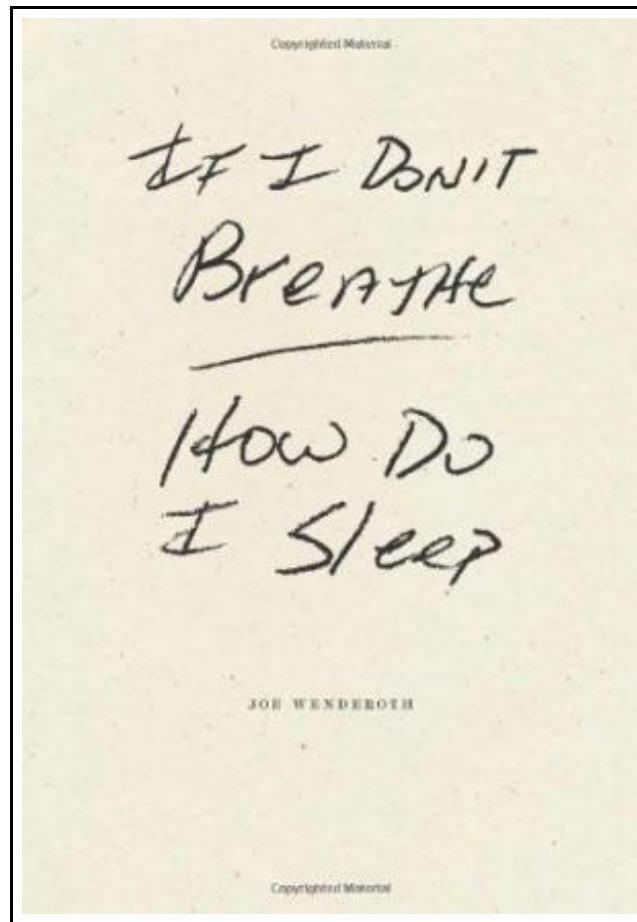 Copyrighted Material
If I DON'T
BreATHe
How Do
I Sleep
JOE WENDEROTH
Copyrighted Material